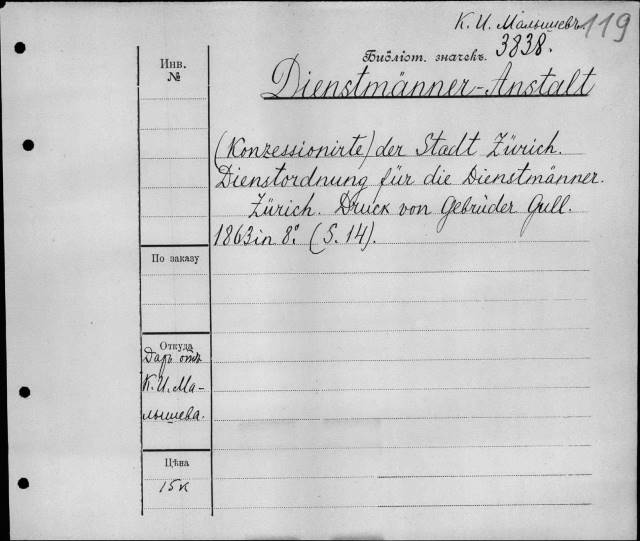 К. И. Малышевъ. 119
Библіот. значекъ. 3838.
Инв.
№
Dienstmänner-Anstalt
(Konzessionirte) der Stadt Zürich.
Dienstordnung für die Dienstmänner.
Zürich. Druck von Gebrüder Gull.
1863 in 8º. (S. 14).
По заказу
Откуда
Даръ отъ
К. И. Ма-
лышева.
Цѣна
15 к